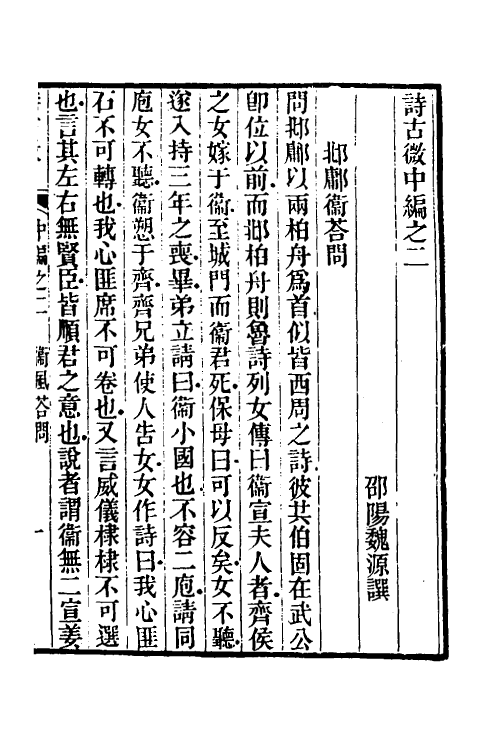 詩古微中編之二
邵陽魏源譔
邶鄘衞荅問
問邶鄘以兩柏舟爲首似皆西周之詩彼共伯固在武公
卽位以前而邶柏舟則魯詩列女傳曰衞宣夫人者齊侯
之女嫁于衞至城門而衞君死保母曰可以反矣女不聽
遂入持三年之喪畢弟立請曰衞小國也不容二庖請同
庖女不聽衞愬于齊齊兄弟使人告女女作詩曰我心匪
石不可轉也我心匪席不可卷也又言威儀棣棣不可選
也言其左右無賢臣皆順君之意也說者謂衞無二宣姜
中編之二 衞風荅問 一